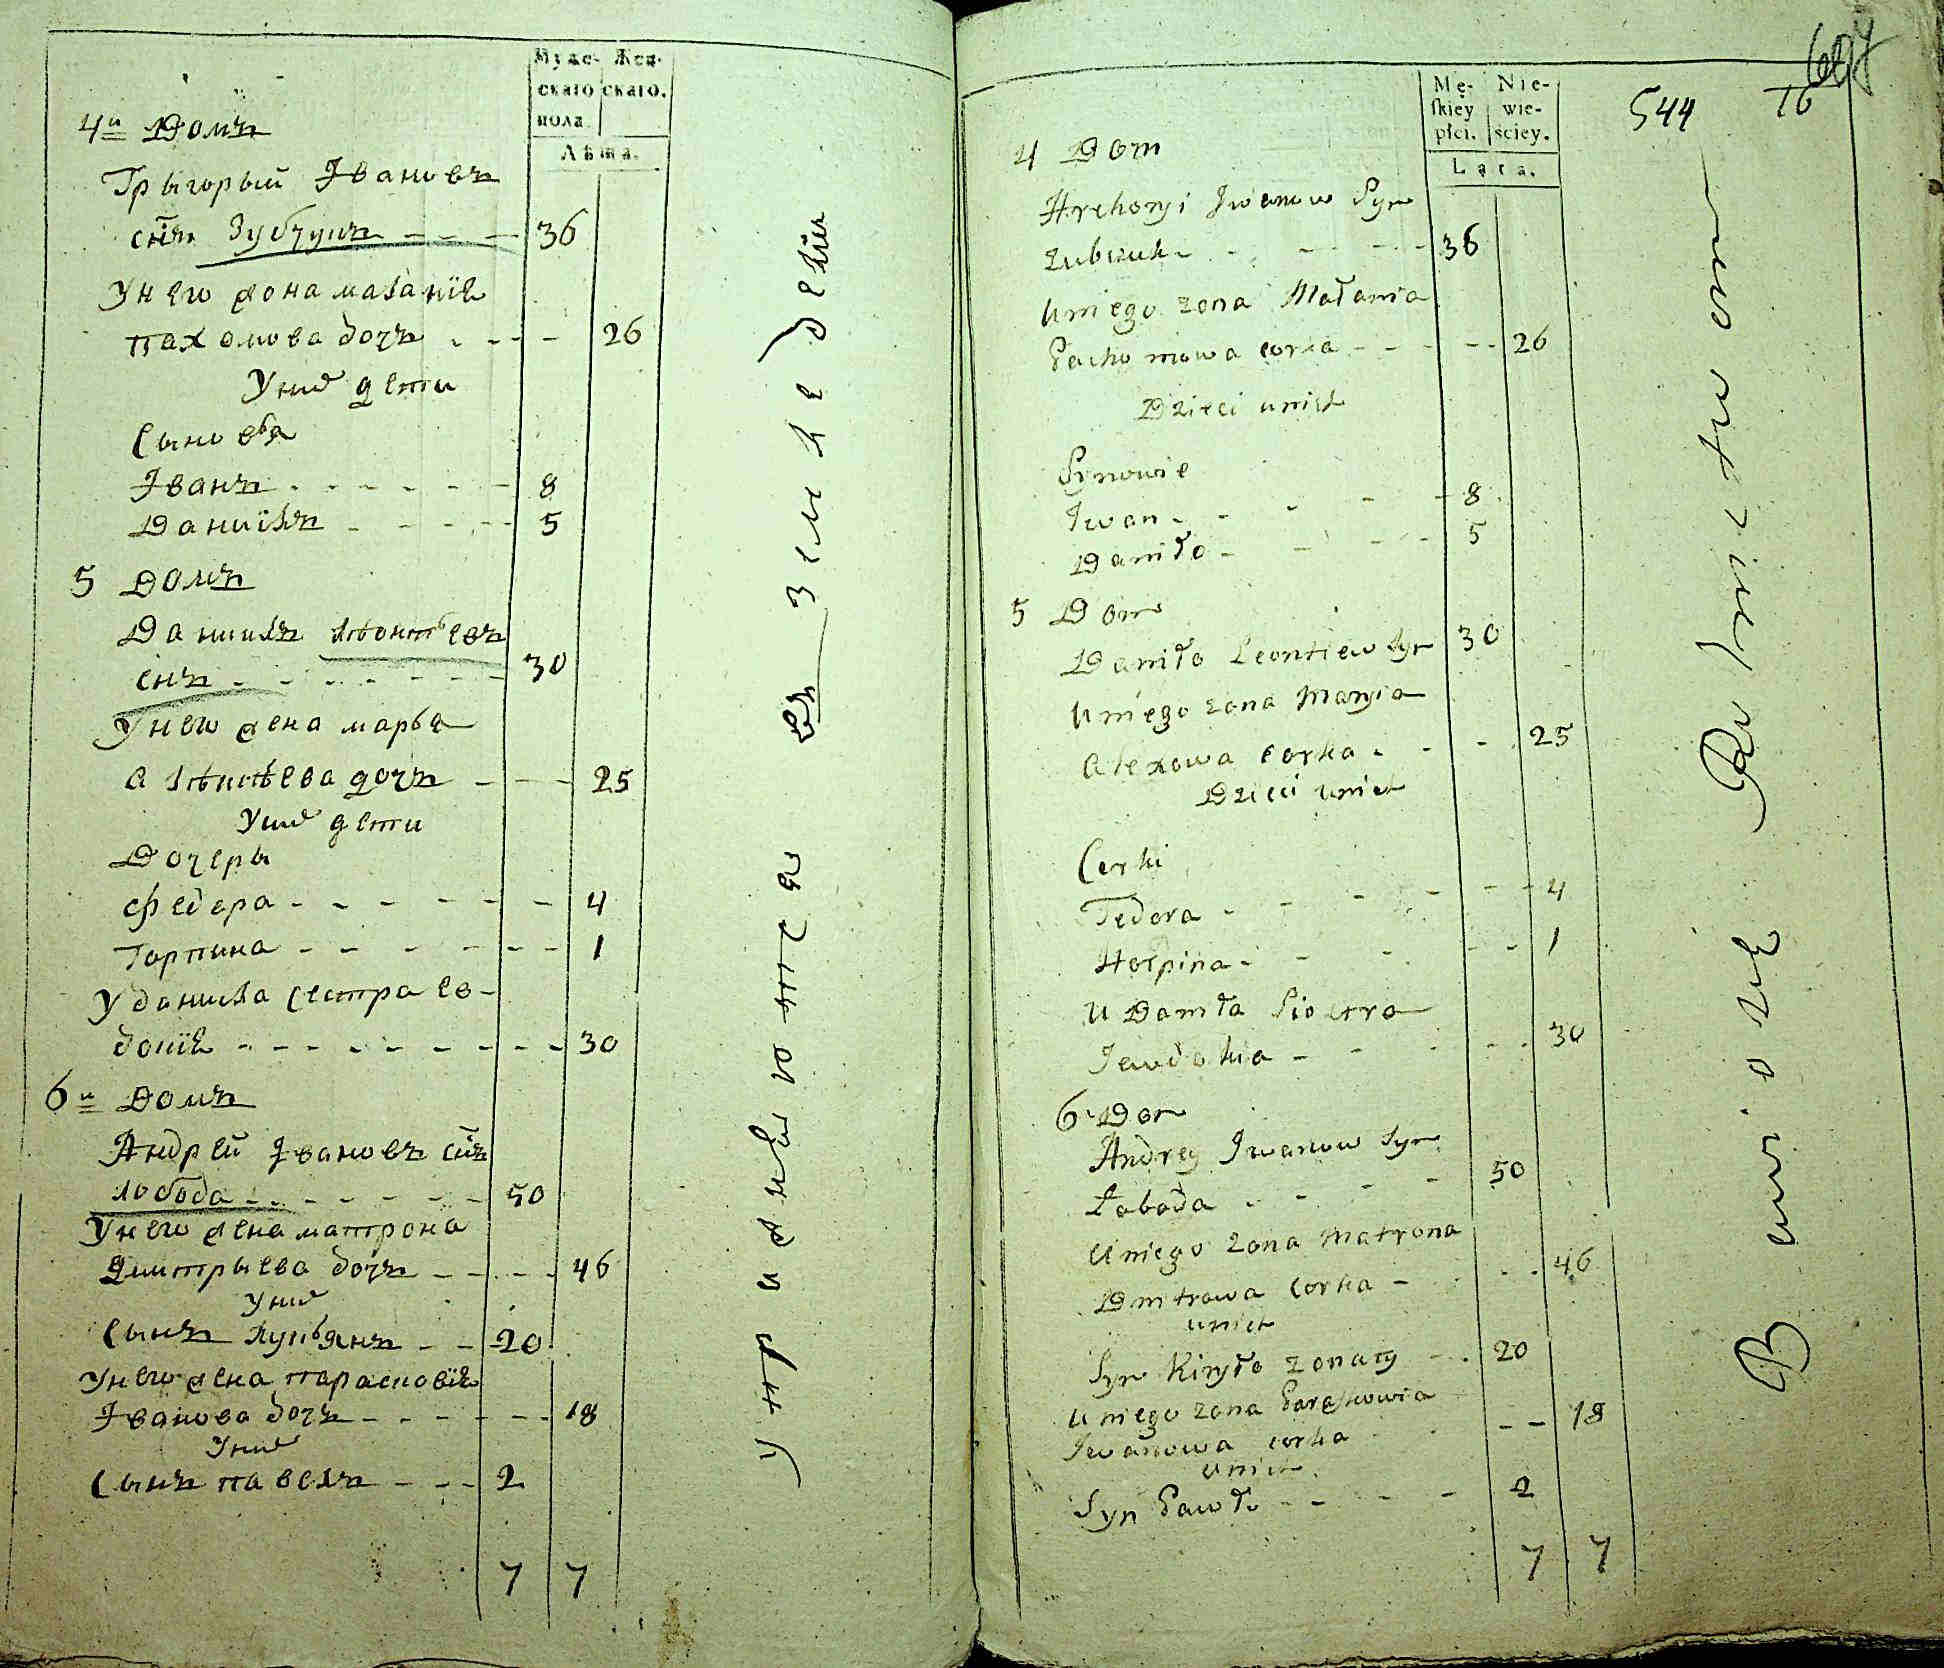 Муже-
скаго
пола.
Жен-
скаго.
Лѣта.
4й Домъ
Грыгорый Ивановъ
снъ Зубчукъ 36
У него жона маланія
пахомова дочъ 26
У них дети
Сыновья
Иванъ 8
Данилъ 5
5 Домъ
Данилъ Леонтьевъ
снъ 30
У него жена марья
алексѣева дочъ 25
У них дети
Дочеры
Федора 4
Горпина 1
У данила сестра ев-
докія 30
6й Домъ
Андрей Ивановъ снъ
лобода 50
У него жена матрона
Дмитрыева дочъ 46
У них
Сынъ 20
У него жена парасковія
Иванова дочъ 18
У них
Сынъ павелъ 2
7 7
упражняются въ земледелии
607
544 16
Mę-
skiey
płci.
Nie-
wie-
ściey.
Lata.
4 Dom
Iwanow Syn
Zubczuk 36
U niego zona Małania
Pachomowa corka 26
Dzieci u nich
Synowie
Iwan 8
Daniło 5
5 Dom
Daniło Leontiew Syn 30
U niego zona Maryia
Alexowa corka 25
Dzieci u nich
Corki
Fedora 4
Horpina 1
U Daniła Siostra
Jewdokia 30
6 Dom
Andrey Iwanow Syn
Łoboda 50
U niego zona Matrona
Dmitrowa Corka 46
u nich
Syn Kiryło zonaty 20
U niego zona Paraskowia
Iwanowa corka 18
u nich
Syn Pawło 2
7 7